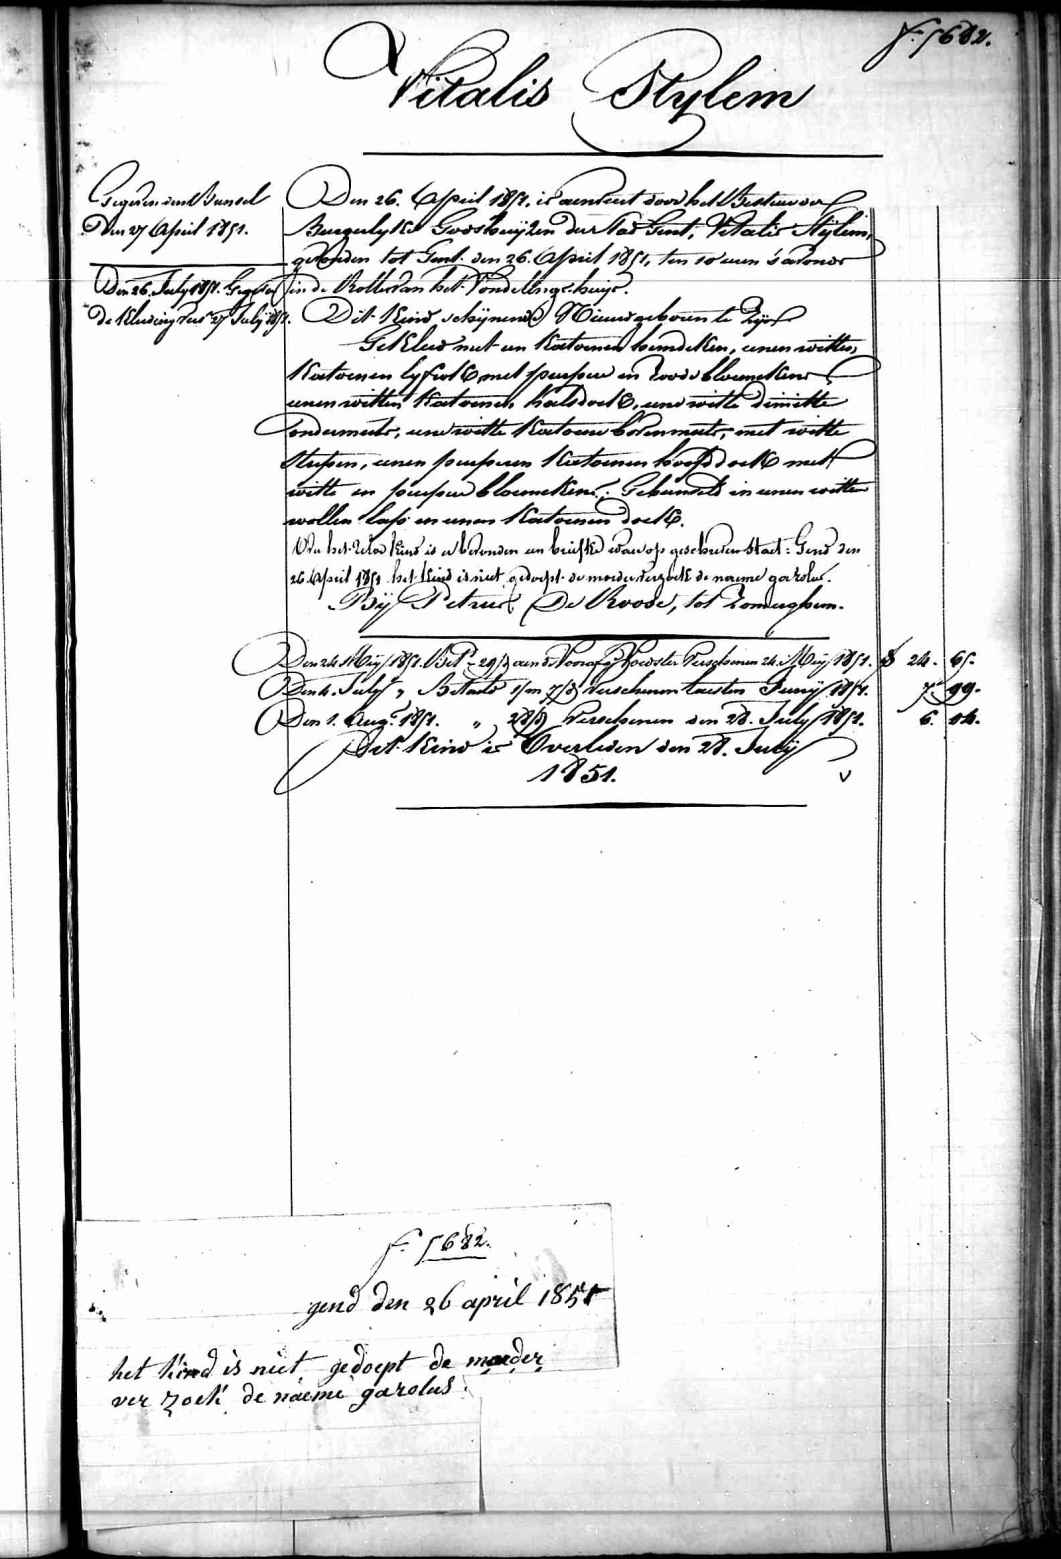 f. 5682.
Vitalis Stylem
Gegeven den Bunsel
Den 27 April 1851.
Den 26 July 1851. Gegeven
de Kleeding vers 27 July 1851.
Den 26. April 1851. is aenveert door het Bestuer der
Burgerlyke Godshuijzen der Stad Gent, Vitalis Stÿlem,
gevonden tot Gent. den 26. April 1851, ten 10 uren s'avonds
in de Rolle van het Vondelingshuijs.
Dit Kind schijnende Nieuwgeboren te Zijn
Gekleed met een Katoenen hemdeken, eenen witten
Katoenen lyfrok, met purpere en roode bloemekens
eenen witten Katoenen halsdoek, eene witte dimitte
ondermuts, eene witte Katoene bovenmuts, met witte
strepen, eenen purperen Katoenen hoofddoek met
witte en purpere bloemekens. Gebunseld in eenen witten
wollen lap en eenen Katoenen doek.
Op het zelve Kind is er bevonden een briefke waer op geschreven Staet: Gend den
26 April 1851 het Kind is niet gedoept de moeder verzoekt de naeme garolus.
Bÿ Petrus De Roose, tot Zomerghem.
Den 24 Mÿ 1851. Bet. 29/ aen Voorschot Verschenen 24. Meij 1851. 24. 65.
Den 4. July " Betaeld Verschenen lasten Junÿ 1851. 7. 99.
Den 1. Aug. 1851. " 28/ Verschenen den 28. July 1851. 6. 04.
Dit Kind is Overleden den 28. Julÿ
1851.
f. 5682.
gend den 26 april 1851
het kind is niet gedoept de moeder
ver zoek de naeme garolus